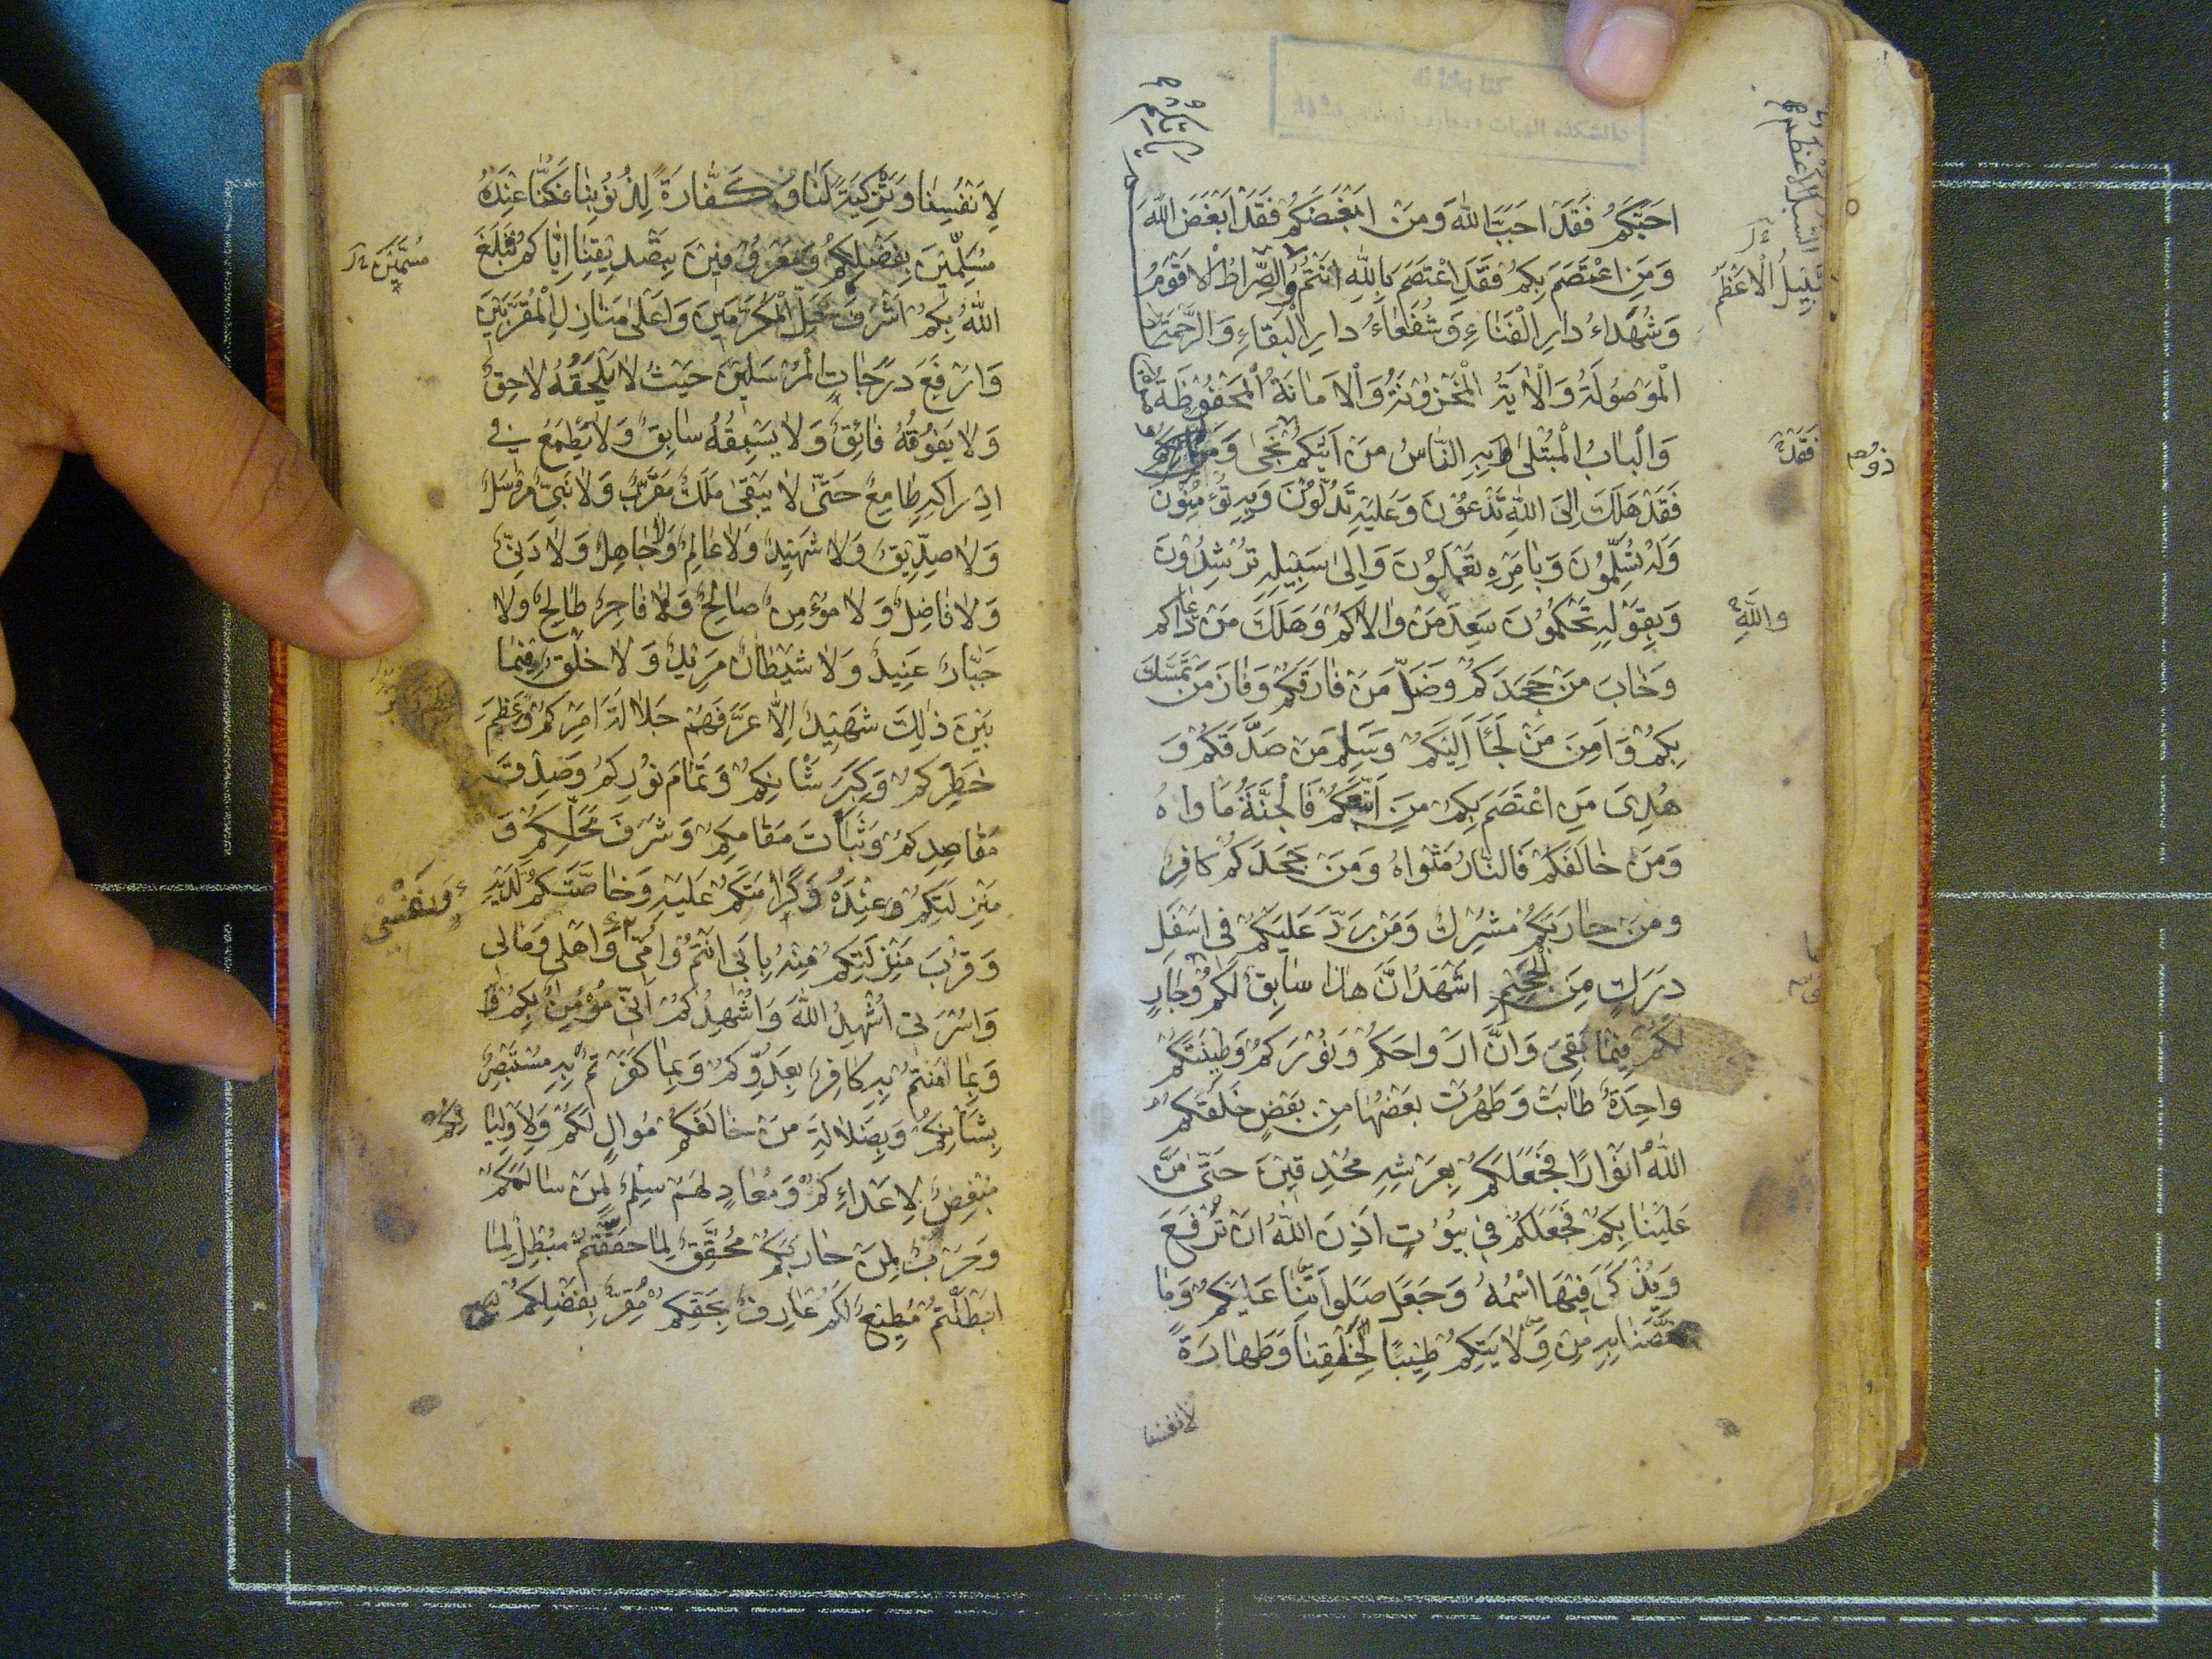 احَبَّكُمْ فَقَدْ احَبَّ اللهَ وَمَنْ ابْغَضَكُمْ فَقَدْ ابْغَضَ اللهَ
وَمَنِ اعْتَصَمَ بِكُمْ فَقَدِ اعْتَصَمَ بِاللهِ انْتُمُ الصِّراطُ الْاقْوَمُ
السَّبِيلُ الْاعْظَمُ
وَشُهَداءُ دارِ الْفَناءِ وَشُفَعاءُ دارِ الْبَقاءِ وَالرَّحْمَةُ
الْمَوْصُولَةُ وَالْايَةُ الْمَخْزُونَةُ وَالْامانَةُ الْمَحْفُوظَةُ
وَالْبابُ الْمُبْتَلى بِهِ النّاسُ مَنْ اَتيكُمْ نَجى وَمَنْ
فَقَدْ
فَقَدْ هَلَكَ اِلَى اللهِ تَدْعُونَ وَعَلَيْهِ تَدُلُّونَ وَبِهِ تُؤْمِنُونَ
وَلَهُ تُسَلِّمُونَ وَبِامْرِهِ تَعْمَلُونَ وَاِلى سَبِيلِهِ تُرْشِدُونَ
وَبِقَوْلِهِ تَحْكُمُونَ سَعِدَ مَنْ والاكُمْ وَهَلَكَ مَنْ عاداكُمْ
وَاللهِ
وَخابَ مَنْ جَحَدَكُمْ وَضَلَّ مَنْ فارَقَكُمْ وَفازَ مَنْ تَمَسَّكَ
بِكُمْ وَامِنَ مَنْ لَجَأَ اِلَيْكُمْ وَسَلِمَ مَنْ صَدَّقَكُمْ وَ
هُدِىَ مَنِ اعْتَصَمَ بِكُمْ مَنِ اتَّبَعَكُمْ فَالْجَنَّةُ مَاواهُ
وَمَنْ خالَفَكُمْ فَالنّارُ مَثْواهُ وَمَنْ جَحَدَكُمْ كافِرٌ
وَمَنْ حارَبَكُمْ مُشْرِكٌ وَمَنْ رَدَّ عَلَيْكُمْ فِى اسْفَلِ
دَرَكٍ مِنَ الْجَحِيمِ اشْهَدُ انَّ هذا سابِقٌ لَكُمْ وَجارٍ
لَكُمْ فِيما بَقِىَ وَانَّ ارْواحَكُمْ وَنُورَكُمْ وَطِينَتَكُمْ
واحِدَةٌ طابَتْ وَطَهُرَتْ بَعْضُها مِنْ بَعْضٍ خَلَقَكُمُ
اللهُ انْوارًا فَجَعَلَكُمْ بِعَرْشِهِ مُحْدِقِينَ حَتّى مَنَّ
عَلَيْنا بِكُمْ فَجَعَلَكُمْ فِى بُيُوتٍ اذِنَ اللهُ انْ تُرْفَعَ
وَيُذْكَرَ فِيهَا اسْمُهُ وَجَعَلَ صَلَواتِنا عَلَيْكُمْ وَما
خَصَّنا بِهِ مِنْ وَلايَتِكُمْ طِيبًا لِخَلْقِنا وَطَهارَةً
لانفسنا
لِانْفُسِنا وَتَزْكِيَةً لَنا وَكَفّارَةً لِذُنُوبِنا فَكُنّا عِنْدَهُ
مُسَلِّمِينَ بِفَضْلِكُمْ وَمَعْرُوفِينَ بِتَصْدِيقِنا اِيّاكُمْ فَبَلَغَ
مُسَمَّيْنَ
اللهُ بِكُمْ اشْرَفَ مَحَلِّ الْمُكَرَّمِينَ وَاعْلى مَنازِلِ الْمُقَرَّبِينَ
وَارْفَعَ دَرَجاتِ الْمُرْسَلِينَ حَيْثُ لا يَلْحَقُهُ لاحِقٌ
وَلا يَفُوقُهُ فائِقٌ وَلا يَسْبِقُهُ سابِقٌ وَلا يَطْمَعُ فِى
اِدْراكِهِ طامِعٌ حَتّى لا يَبْقى مَلَكٌ مُقَرَّبٌ وَلا نَبِىٌّ مُرْسَلٌ
وَلا صِدِّيقٌ وَلا شَهِيدٌ وَلا عالِمٌ وَلا جاهِلٌ وَلا دَنِىٌّ
وَلا فاضِلٌ وَلا مُؤْمِنٌ صالِحٌ وَلا فاجِرٌ طالِحٌ وَلا
جَبّارٌ عَنِيدٌ وَلا شَيْطانٌ مَرِيدٌ وَلا خَلْقٌ فِيما
بَيْنَ ذلِكَ شَهِيدٌ اِلّا عَرَّفَهُمْ جَلالَةَ امْرِكُمْ وَعِظَمَ
خَطَرِكُمْ وَكِبَرَ شَانِكُمْ وَتَمامَ نُورِكُمْ وَصِدْقَ
مَقاعِدِكُمْ وَثَباتَ مَقامِكُمْ وَشَرَفَ مَحَلِّكُمْ وَ
مَنْزِلَتِكُمْ عِنْدَهُ وَكَرامَتَكُمْ عَلَيْهِ وَخاصَّتَكُمْ لَدَيْهِ
وَقُرْبَ مَنْزِلَتِكُمْ مِنْهُ بِابِى انْتُمْ وَامِّى وَاهْلِى وَمالِى
وَنَفْسِى
وَاسْرَتِى اشْهِدُ اللهَ وَاشْهِدُكُمْ انِّى مُؤْمِنٌ بِكُمْ
وَبِما امَنْتُمْ بِهِ كافِرٌ بِعَدُوِّكُمْ وَبِما كَفَرْتُمْ بِهِ مُسْتَبْصِرٌ
بِشَانِكُمْ وَبِضَلالَةِ مَنْ خالَفَكُمْ مُوالٍ لَكُمْ وَلِاوْلِيائِكُمْ
مُبْغِضٌ لِاعْداءِكُمْ وَمُعادٍ لَهُمْ سِلْمٌ لِمَنْ سالَمَكُمْ
وَحَرْبٌ لِمَنْ حارَبَكُمْ مُحَقِّقٌ لِما حَقَّقْتُمْ مُبْطِلٌ لِما
ابْطَلْتُمْ مُطِيعٌ لَكُمْ عارِفٌ بِحَقِّكُمْ مُقِرٌّ بِفَضْلِكُمْ